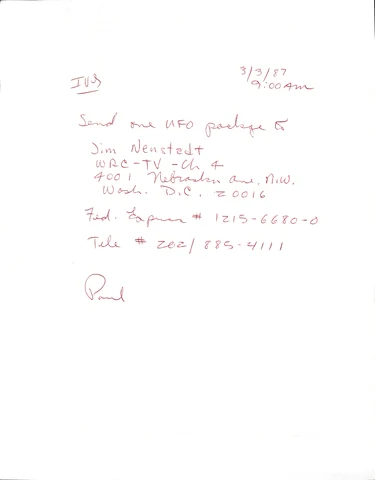 3/3/87
9:00 Am
Send one UFO package to
Jim Neustadt
WRC-TV - Ch 4
4001 Nebraska Ave. N.W.
Wash. D.C. 20016
Fed. Express # 1215-6680-0
Tele # 202/885-4111
Paul